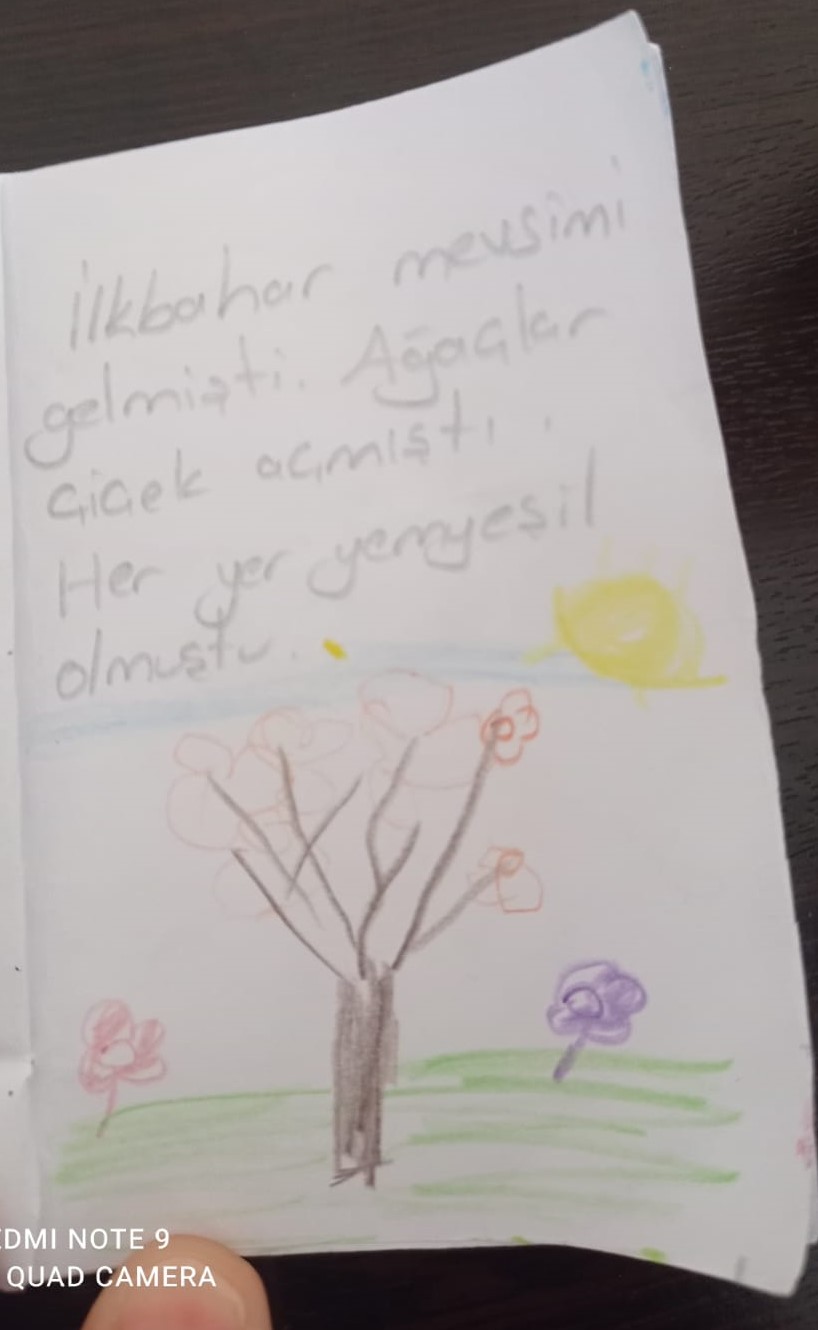 İlkbahar mevsimi
gelmişti. Ağaçlar
çiçek açmıştı.
Her yer yemyeşil
olmuştu.
EDMI NOTE 9
QUAD CAMERA